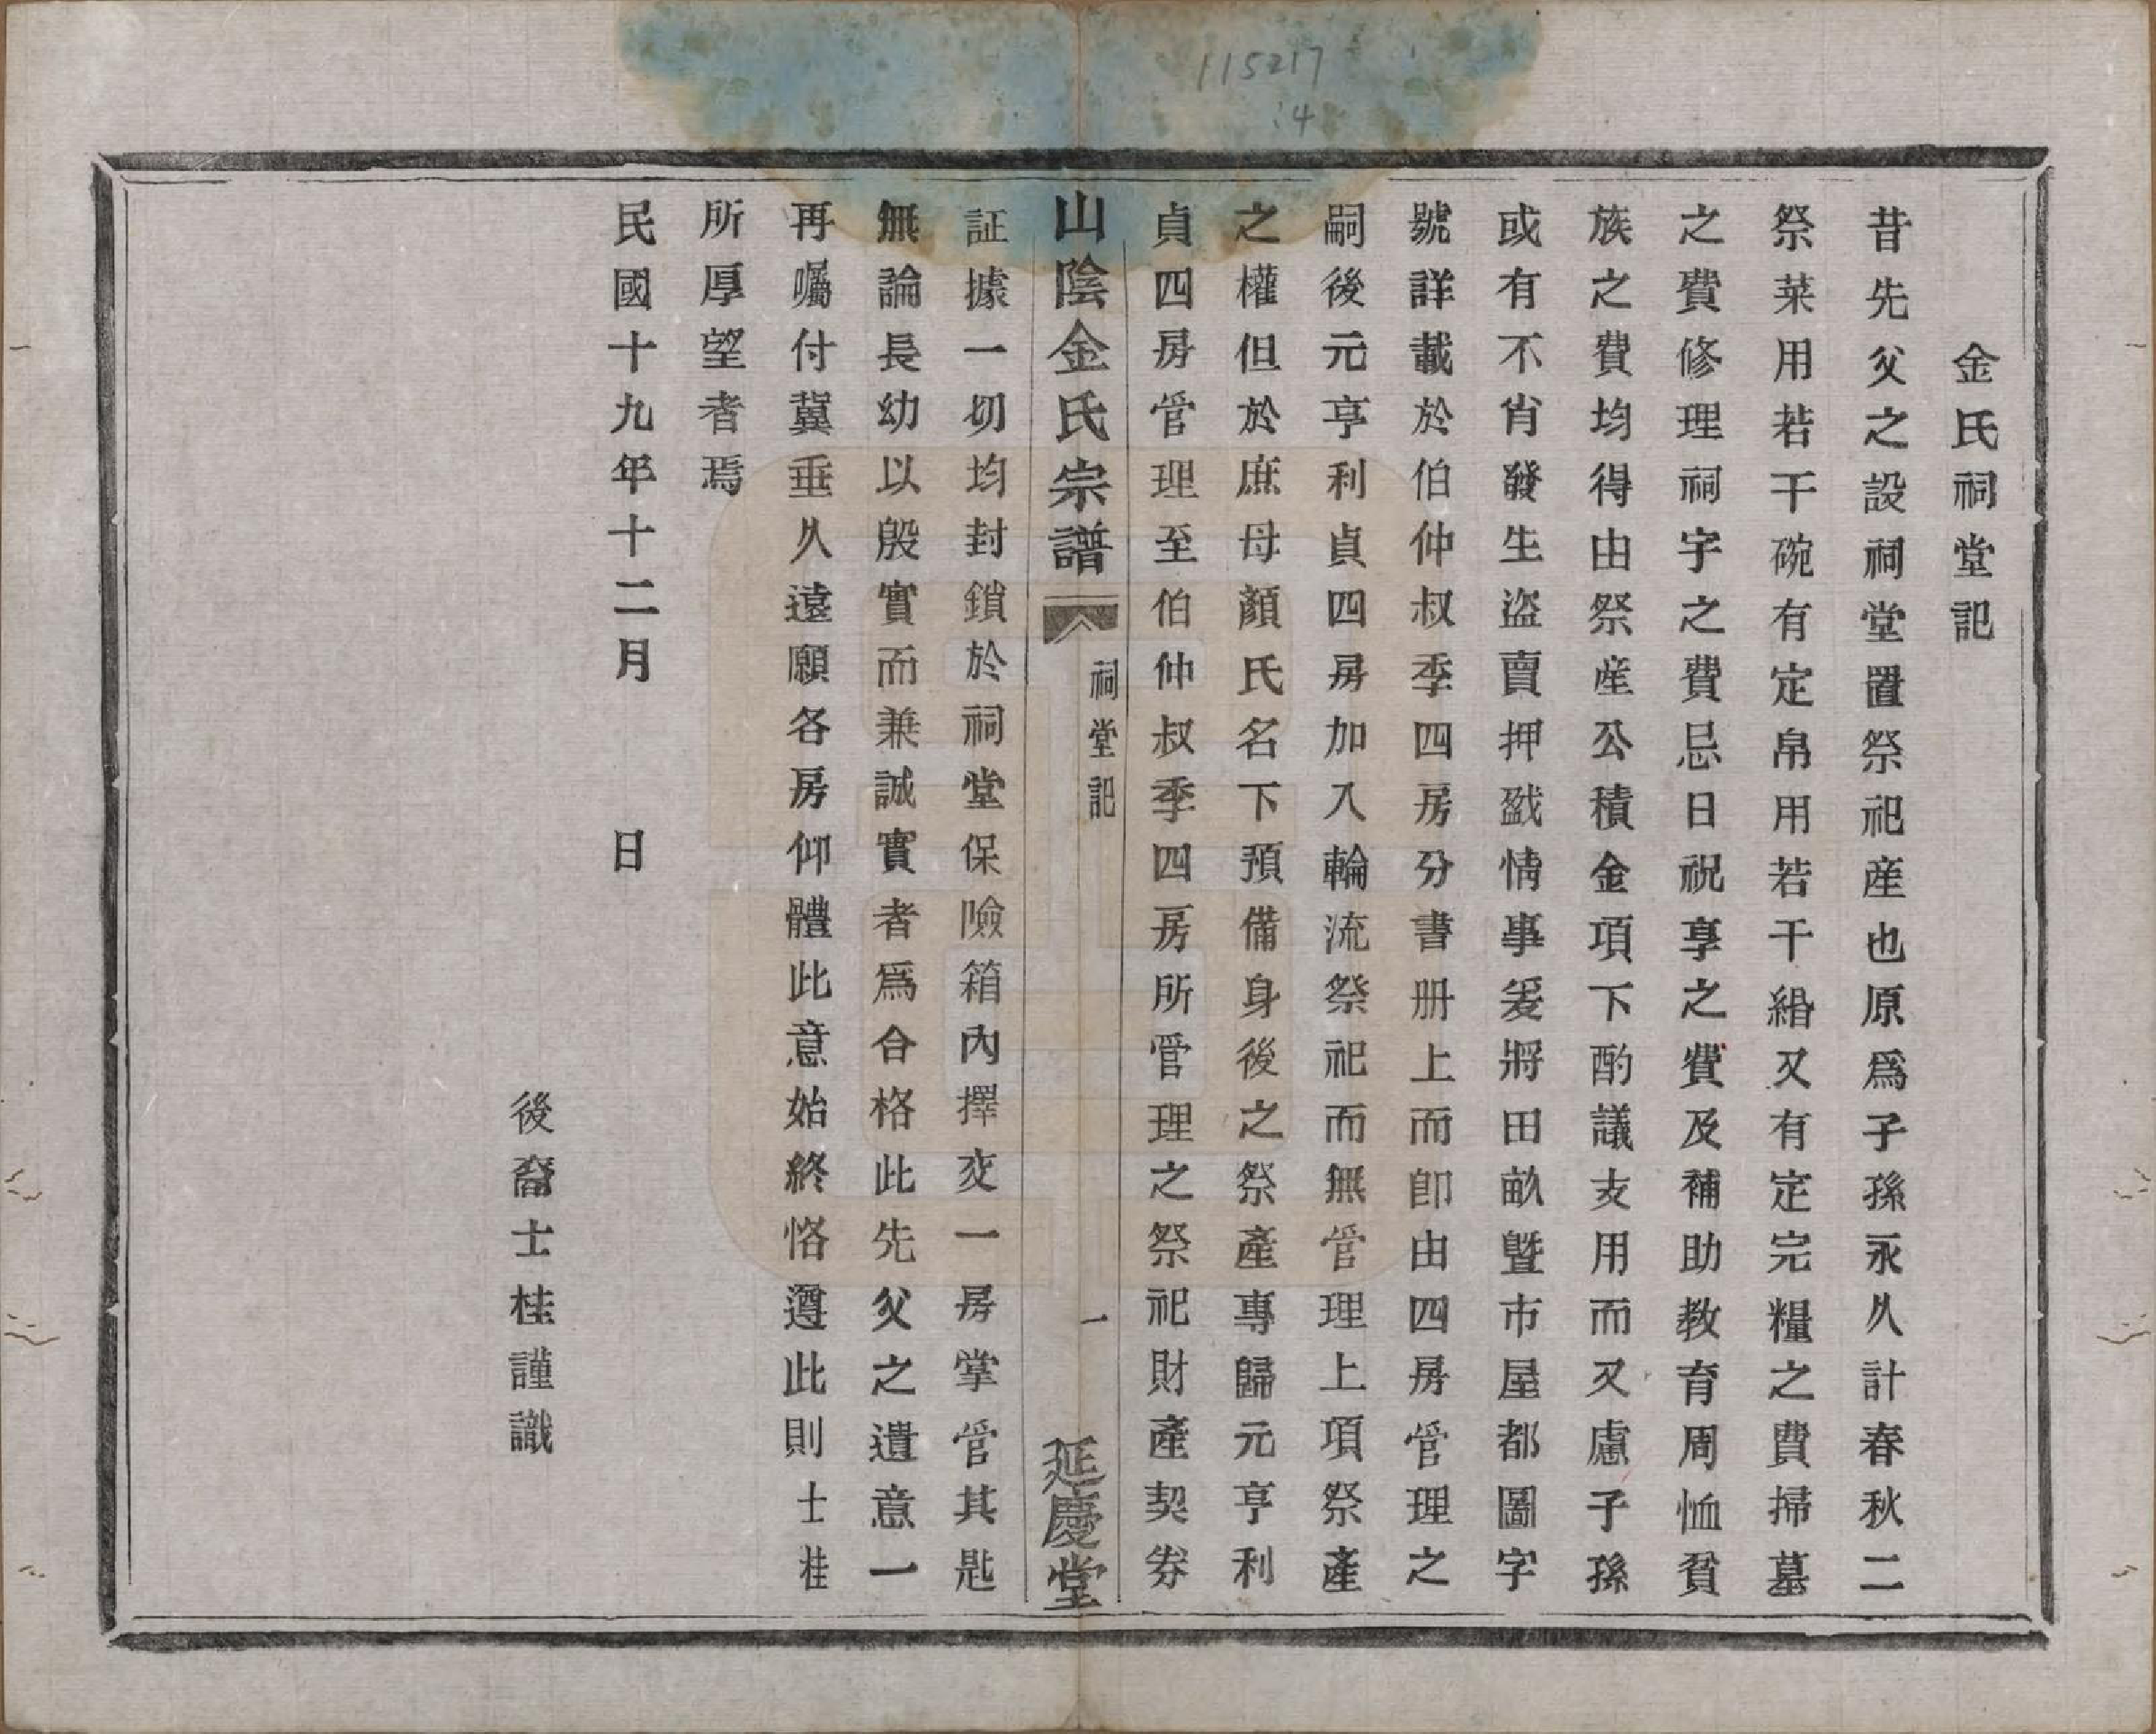 115217
:4
金氏祠堂記
昔先父之設祠堂置祭祀産也原爲子孫永久計春秋二
祭菜用若干碗有定帛用若干緡又有定完糧之費掃墓
之費修理祠宇之費忌日祝享之費及補助教育周恤貧
族之費均得由祭産公積金項下酌議支用而又慮子孫
或有不肖發生盜賣押戤情事爰將田畝曁市屋都圖字
號詳載於伯仲叔季四房分書册上而卽由四房管理之
嗣後元亨利貞四房加入輪流祭祀而無管理上項祭產
之權但於庶母顏氏名下預備身後之祭產專歸元亨利
貞四房管理至伯仲叔季四房所管理之祭祀財產契劵
山陰金氏宗譜
祠堂記
一
延慶堂
証據一切均封鎖於祠堂保險箱內擇交一房掌管其匙
無論長幼以殷實而兼誠實者爲合格此先父之遺意一
再囑付冀垂久遠願各房仰體此意始終恪遵此則士桂
所厚望者焉
民國十九年十二月　　日
後裔士桂謹識